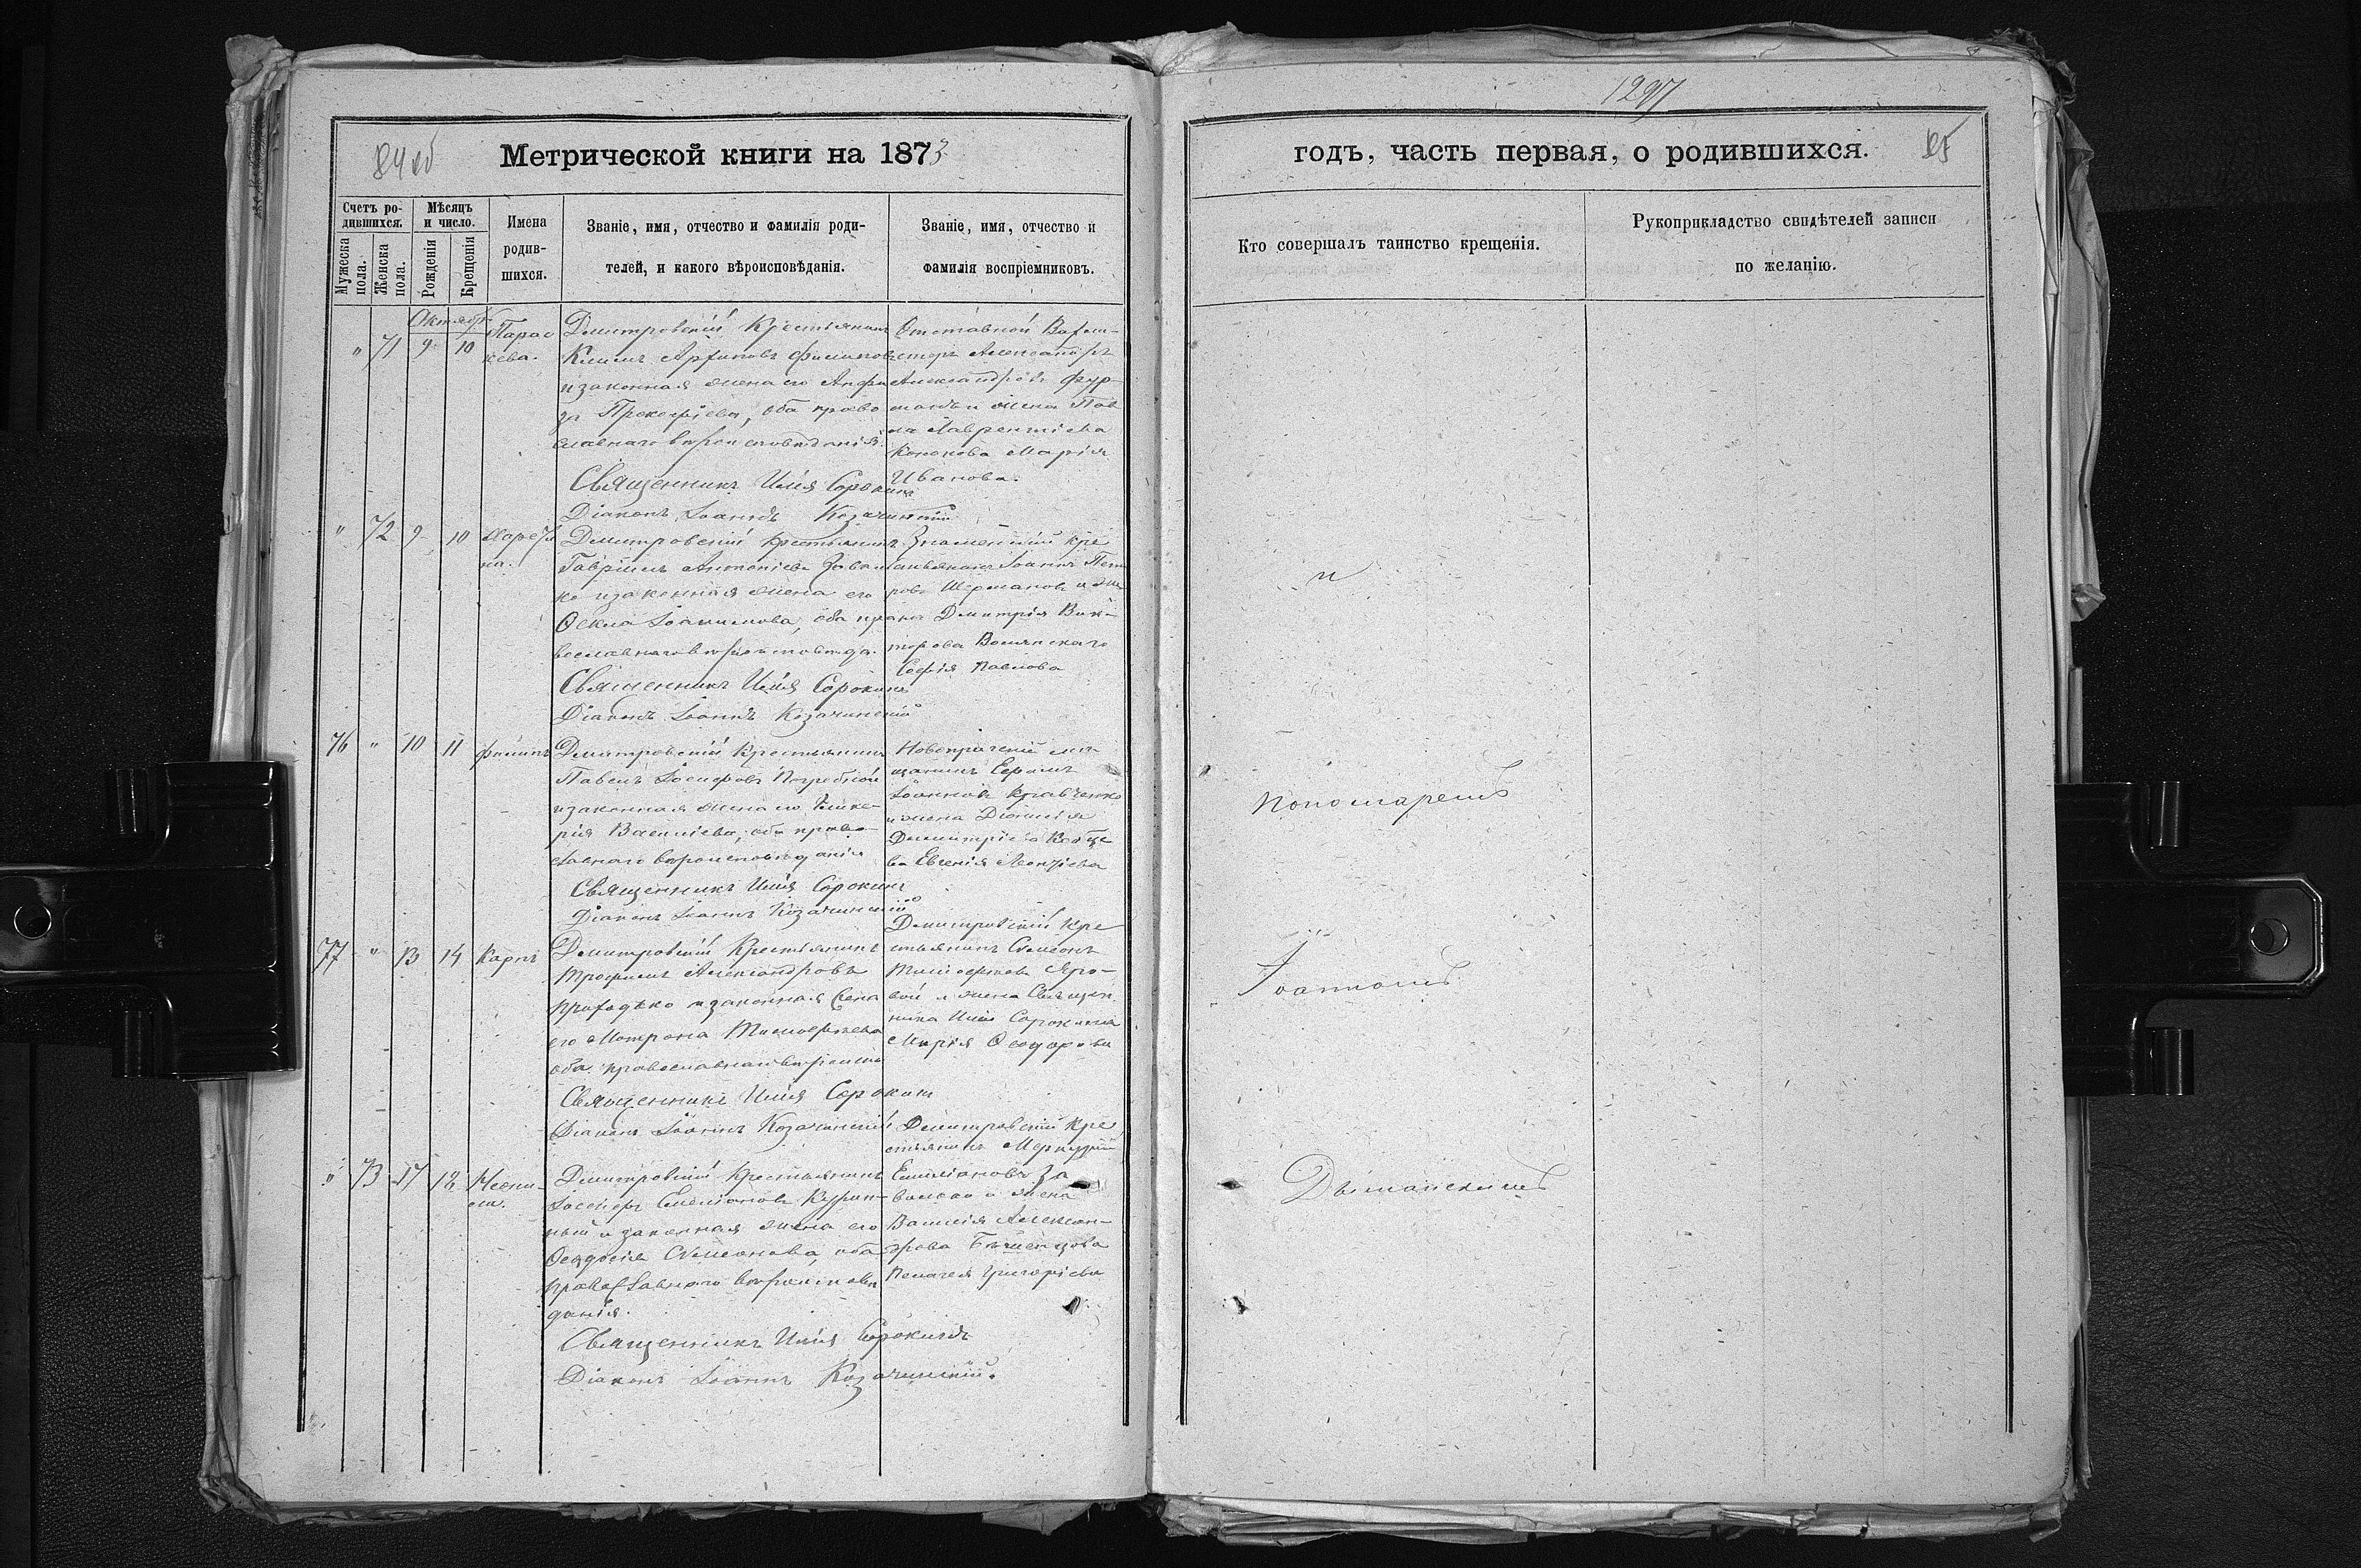 84 об
Метрической книги на 1873
Счетъ ро-
дившихся.
Мужеска
пола.
Женска
пола.
Мѣсяцъ
и число.
Рожденія
Крещенія
Имена
родив-
шихся.
Званіе, имя, отчество и фамилія роди-
телей, и какого вѣроисповѣданія.
Званіе, имя, отчество и
фамилія воспріемниковъ.
Октябрь
" 71 9 10
Парас
кева.
Дмитровскій Крестьянинъ
Климъ
и законная жена его Анфи
за Прокофіева, оба право
славнаго вѣроисповѣданія.
Священникъ Илія Сорокинъ
Діаконъ Іоаннъ Козачинскій
Отставной Вахм-
стеръ Александръ
Александровъ Фур-
и жена Пав
ла Лаврентіева
Марія
Иванова.
" 72 9 10
Дмитровскій Крестьянинъ
Гавріилъ Антоніевъ
и законная жена его
Ѳекла Іоакимова, оба пра
вославнаго
Священникъ Илія Сорокинъ
Діаконъ Іоаннъ Козачинскій
Знаменскій кре
стьянинъ Іоаннъ Пет
ровъ Шермановъ и же
на Дмитрія Вик-
торова
Софія Павлова
76 " 10 11
Филипъ
Дмитровскій Крестьянинъ
Павелъ Іосифовъ Погребной
и законная жена его Глике-
рія Василіева, оба право-
славнаго вѣроисповѣданія
Священникъ Илія Сорокинъ
Діаконъ Іоаннъ Козачинскій
Новопражскій мѣ-
щанинъ Ефимъ
Іоанновъ Кравченко
и жена Діонисія
Димитріева
Евгенія
77 " 13 14
Карпъ
Дмитровскій Крестьянинъ
Трофимъ Александровъ
и законная жена
его Мотрона Тимофеева
оба православнаго вѣроисп
Священникъ Илія Сорокинъ
Діаконъ Іоаннъ Козачинскій
Дмитровскій Кре
стьянинъ Симеонъ
Тимофеевъ Яро-
вой и жена Священ
ника Иліи Сорокина
Марія Ѳеодорова
" 73 17 18
Дмитровскій Крестьянинъ
Іосифъ Емеліановъ
и законная жена его
Ѳеодосія Симеонова, оба
православнаго вѣроисповѣ
данія.
Священникъ Илія Сорокинъ
Діаконъ Іоаннъ Козачинскій.
Дмитровскій Кре
стьянинъ Меркурій
Емиліановъ
и жена
Василія Алексан-
дрова
Пелагея Григоріева
1297
годъ, часть первая, о родившихся.
85
Кто совершалъ таинство крещенія.
Рукоприкладство свидѣтелей записи
по желанію.
и
пономаремъ
Іоанномъ